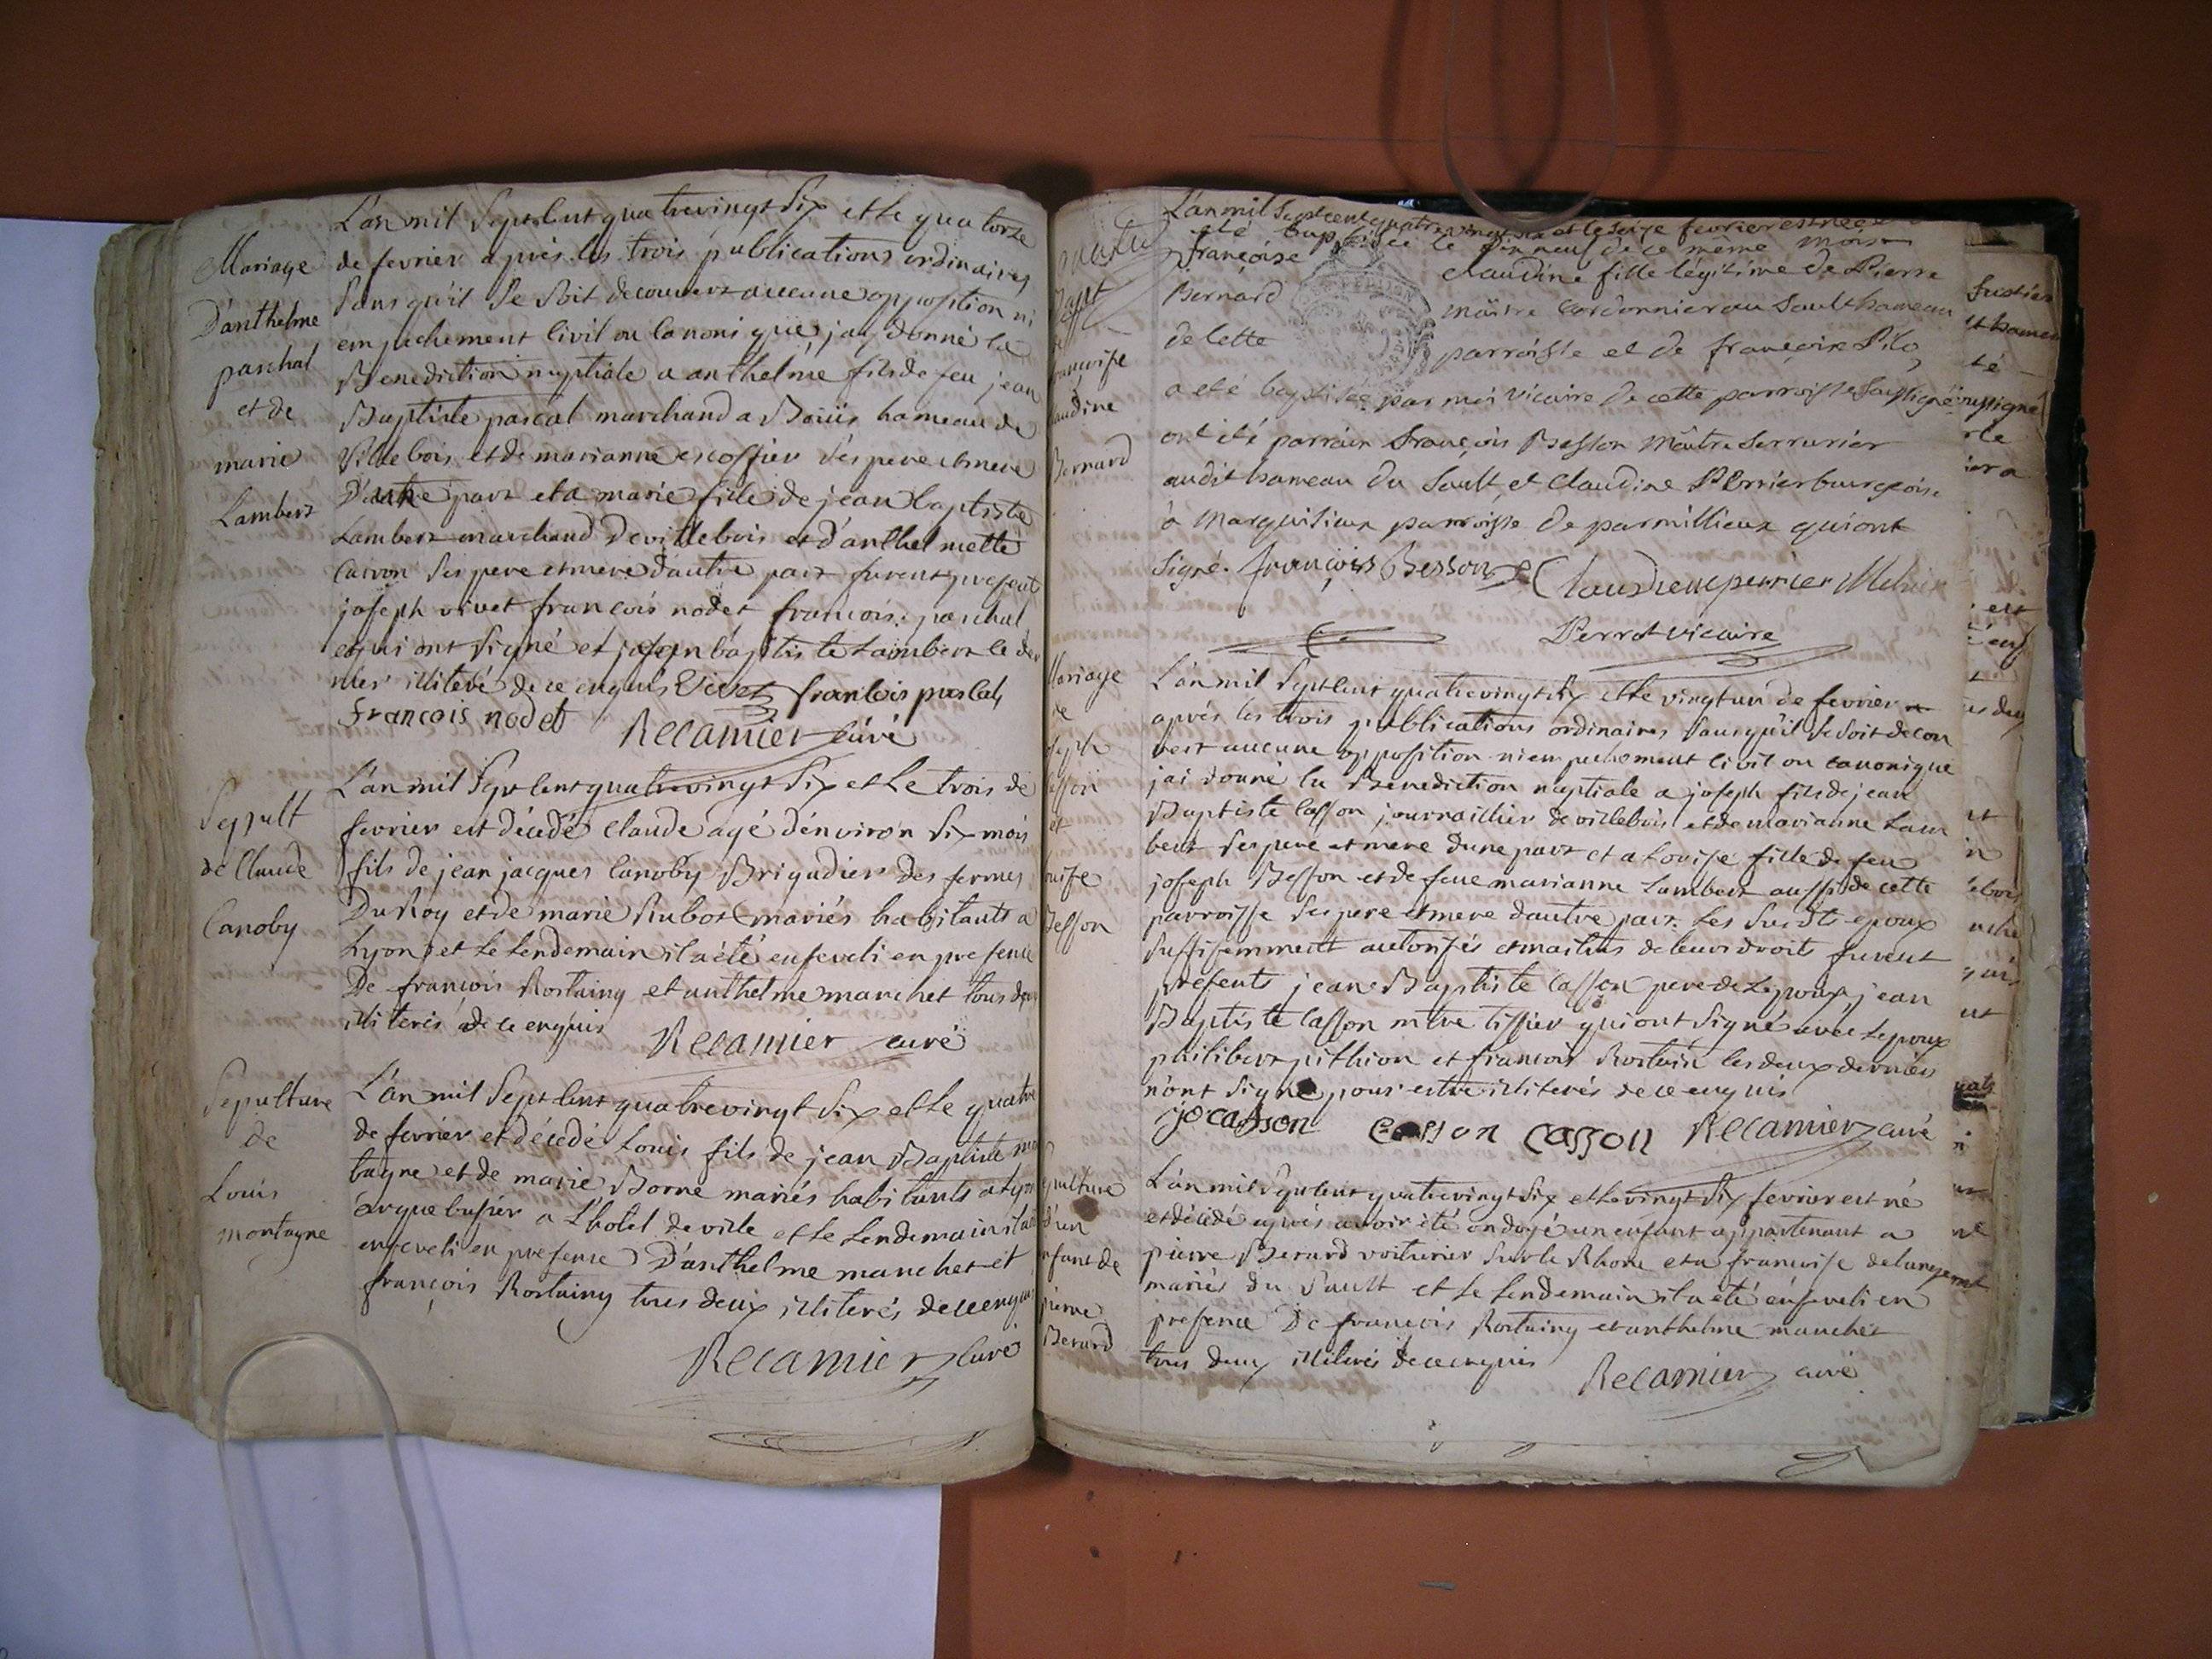 L'an mil Sept Cent quatrevingt Six et le quatorze
Mariage
D'anthelme
paschal
et de
marie
Lambert
de fevrier après les trois publications ordinaires
Sans qu'il Se Soit decouvert aucune opposition ni
empechement Civil ou Canonique, jay donné la
Benediction nuptiale a anthelme fils de feu jean
Baptiste pascal marchand a Boüis hameau de
Villebois et de marianne escoffier Ses pere et mere
D'autre part et a marie fille de jean baptiste
Lambert marchand de villebois et d'anthelmette
Cuvon Ses pere et mere d'autre part furent present
joseph vivet françois nodet françois paschal
et qui ont Signé et joseph baptiste Lambert le der
nier illiteré de ce enquis Vivet francois pascal
francois nodet Recamier Curé
Sepult
de Claude
Canoby
L'an mil Sept Cent quatrevingt Six et Le trois de
fevrier est décédé Claude agé d'environ Six mois
fils de jean jacques Canoby Brigadier des fermes
Du Roy et de marie Rubot mariés habitants a
Lyon et Le Lendemain il a été enseveli en presence
De françois Rostaing et anthelme manchet tous deux
illiterés de ce enquis Recamier curé
Sepulture
de
Louis
montagne
L'an mil Sept Cent quatrevingt Six et Le quatre
de fevrier est décédé Louis fils de jean Baptiste mon
tagne et de marie Borne mariés habitants a Lyon
arquebusier a L'hotel de ville et le Lendemain il a été
enseveli en presense D'anthelme manchet et
françois Rostaing tous deux illiterés de ce enquis
Recamier Curé
Bapt
de
françoise
claudine
Bernard
L'an mil Sept cent quatrevingt six et le seize fevrier est née et a
été baptisée le dix neuf de ce même mois
françoise claudine fille légitime de Pierre
Bernard maître Cordonnier au Sault hameau
de Cette parroisse et de françoise Pilo
a eté baptisée par moi Vicaire de cette parroisse Soussigné
ont été parrain françois Besson Maître Serrurier
audit hameau du Sault, et Claudine Perrier bourgeoise
à Marquisieux parroisse de parmillieux qui ont
Signé. françois Besson Claudine perrier
Perrot vicaire
Mariage
de
joseph
Casson
et
Louise
Besson
L'an mil Sept Cent quatrevingt Six et le vingt un de fevrier
après les trois publications ordinaires Sans qu'il Se Soit decou
vert aucune opposition ni empechement Civil ou canonique
jai donné la Benediction nuptiale a joseph fils de jean
Baptiste Casson journaillier de villebois et de marianne Lam
bert Ses pere et mere d'une part et a Louise fille de feu
joseph Besson et de feue marianne Lambert aussi de cette
parroisse Ses pere et mere d'autre part. Les Susdts epoux
Suffisemment autorisés et maitres de leurs droits furent
presents jean Baptiste Casson pere de L'epoux jean
Baptiste Casson mtre tissier qui ont Signé avec Lepoux
philibert pithion et françois Rostain les deux derniers
n'ont Signé pour estre illiterés de ce enquis
jo casson Casson Casson Recamier curé
Sepulture
d'un
enfant de
pierre
Berard
L'an mil Sept Cent quatrevingt Six et Le vingt Six fevrier est né
et décédé après avoir été ondoyé un enfant appartenant a
pierre Berard voiturier Sur le Rhone et a françoise delangerat
mariés du Sault et Le Lendemain il a été enseveli en
presence De françois Rostaing et anthelme manchet
tous deux illiterés de ce enquis
Recamier curé